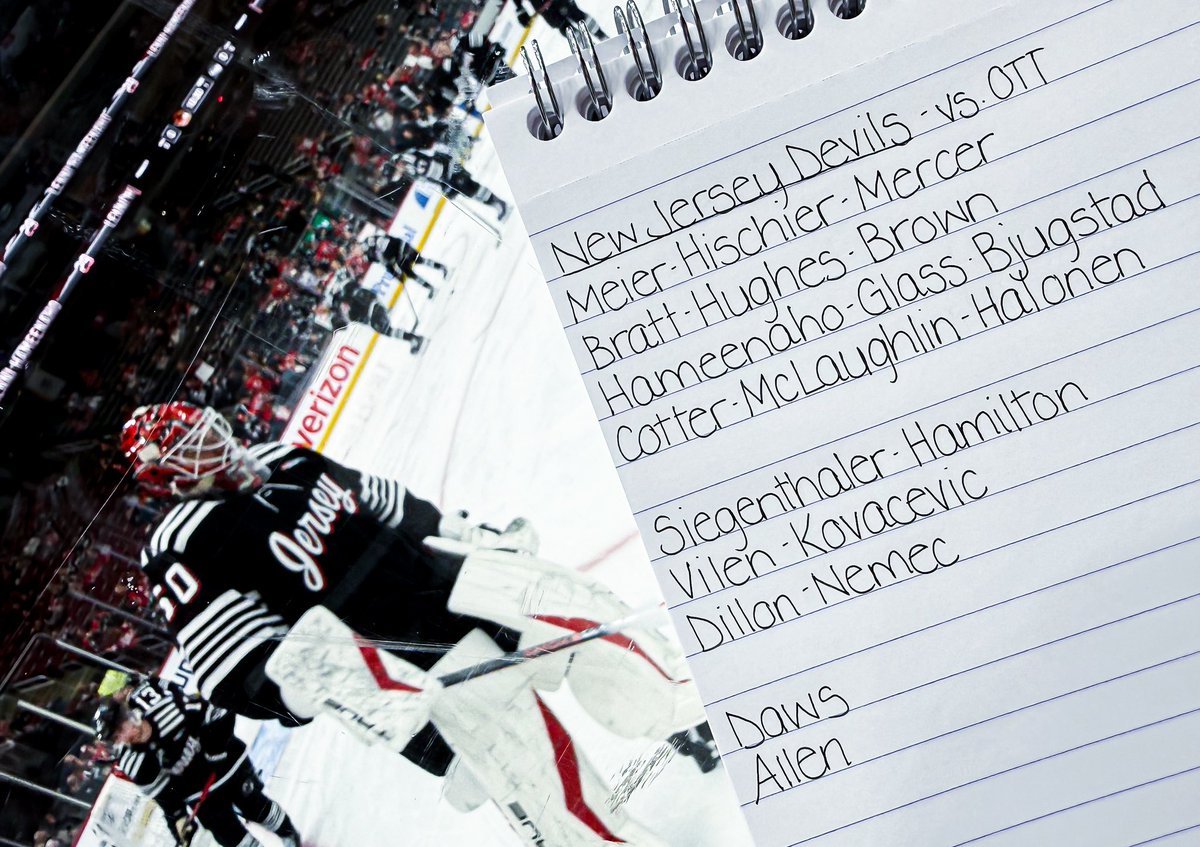 New Jersey Devils - vs. OTT
Meier - Hischier - Mercer
Bratt - Hughes - Brown
Hameenaho - Glass - Bjugstad
Cotter - McLaughlin - Halonen
Siegenthaler - Hamilton
Vilen - Kovacevic
Dillon - Nemec
Daws
Allen
verizon
Jersey
50
13